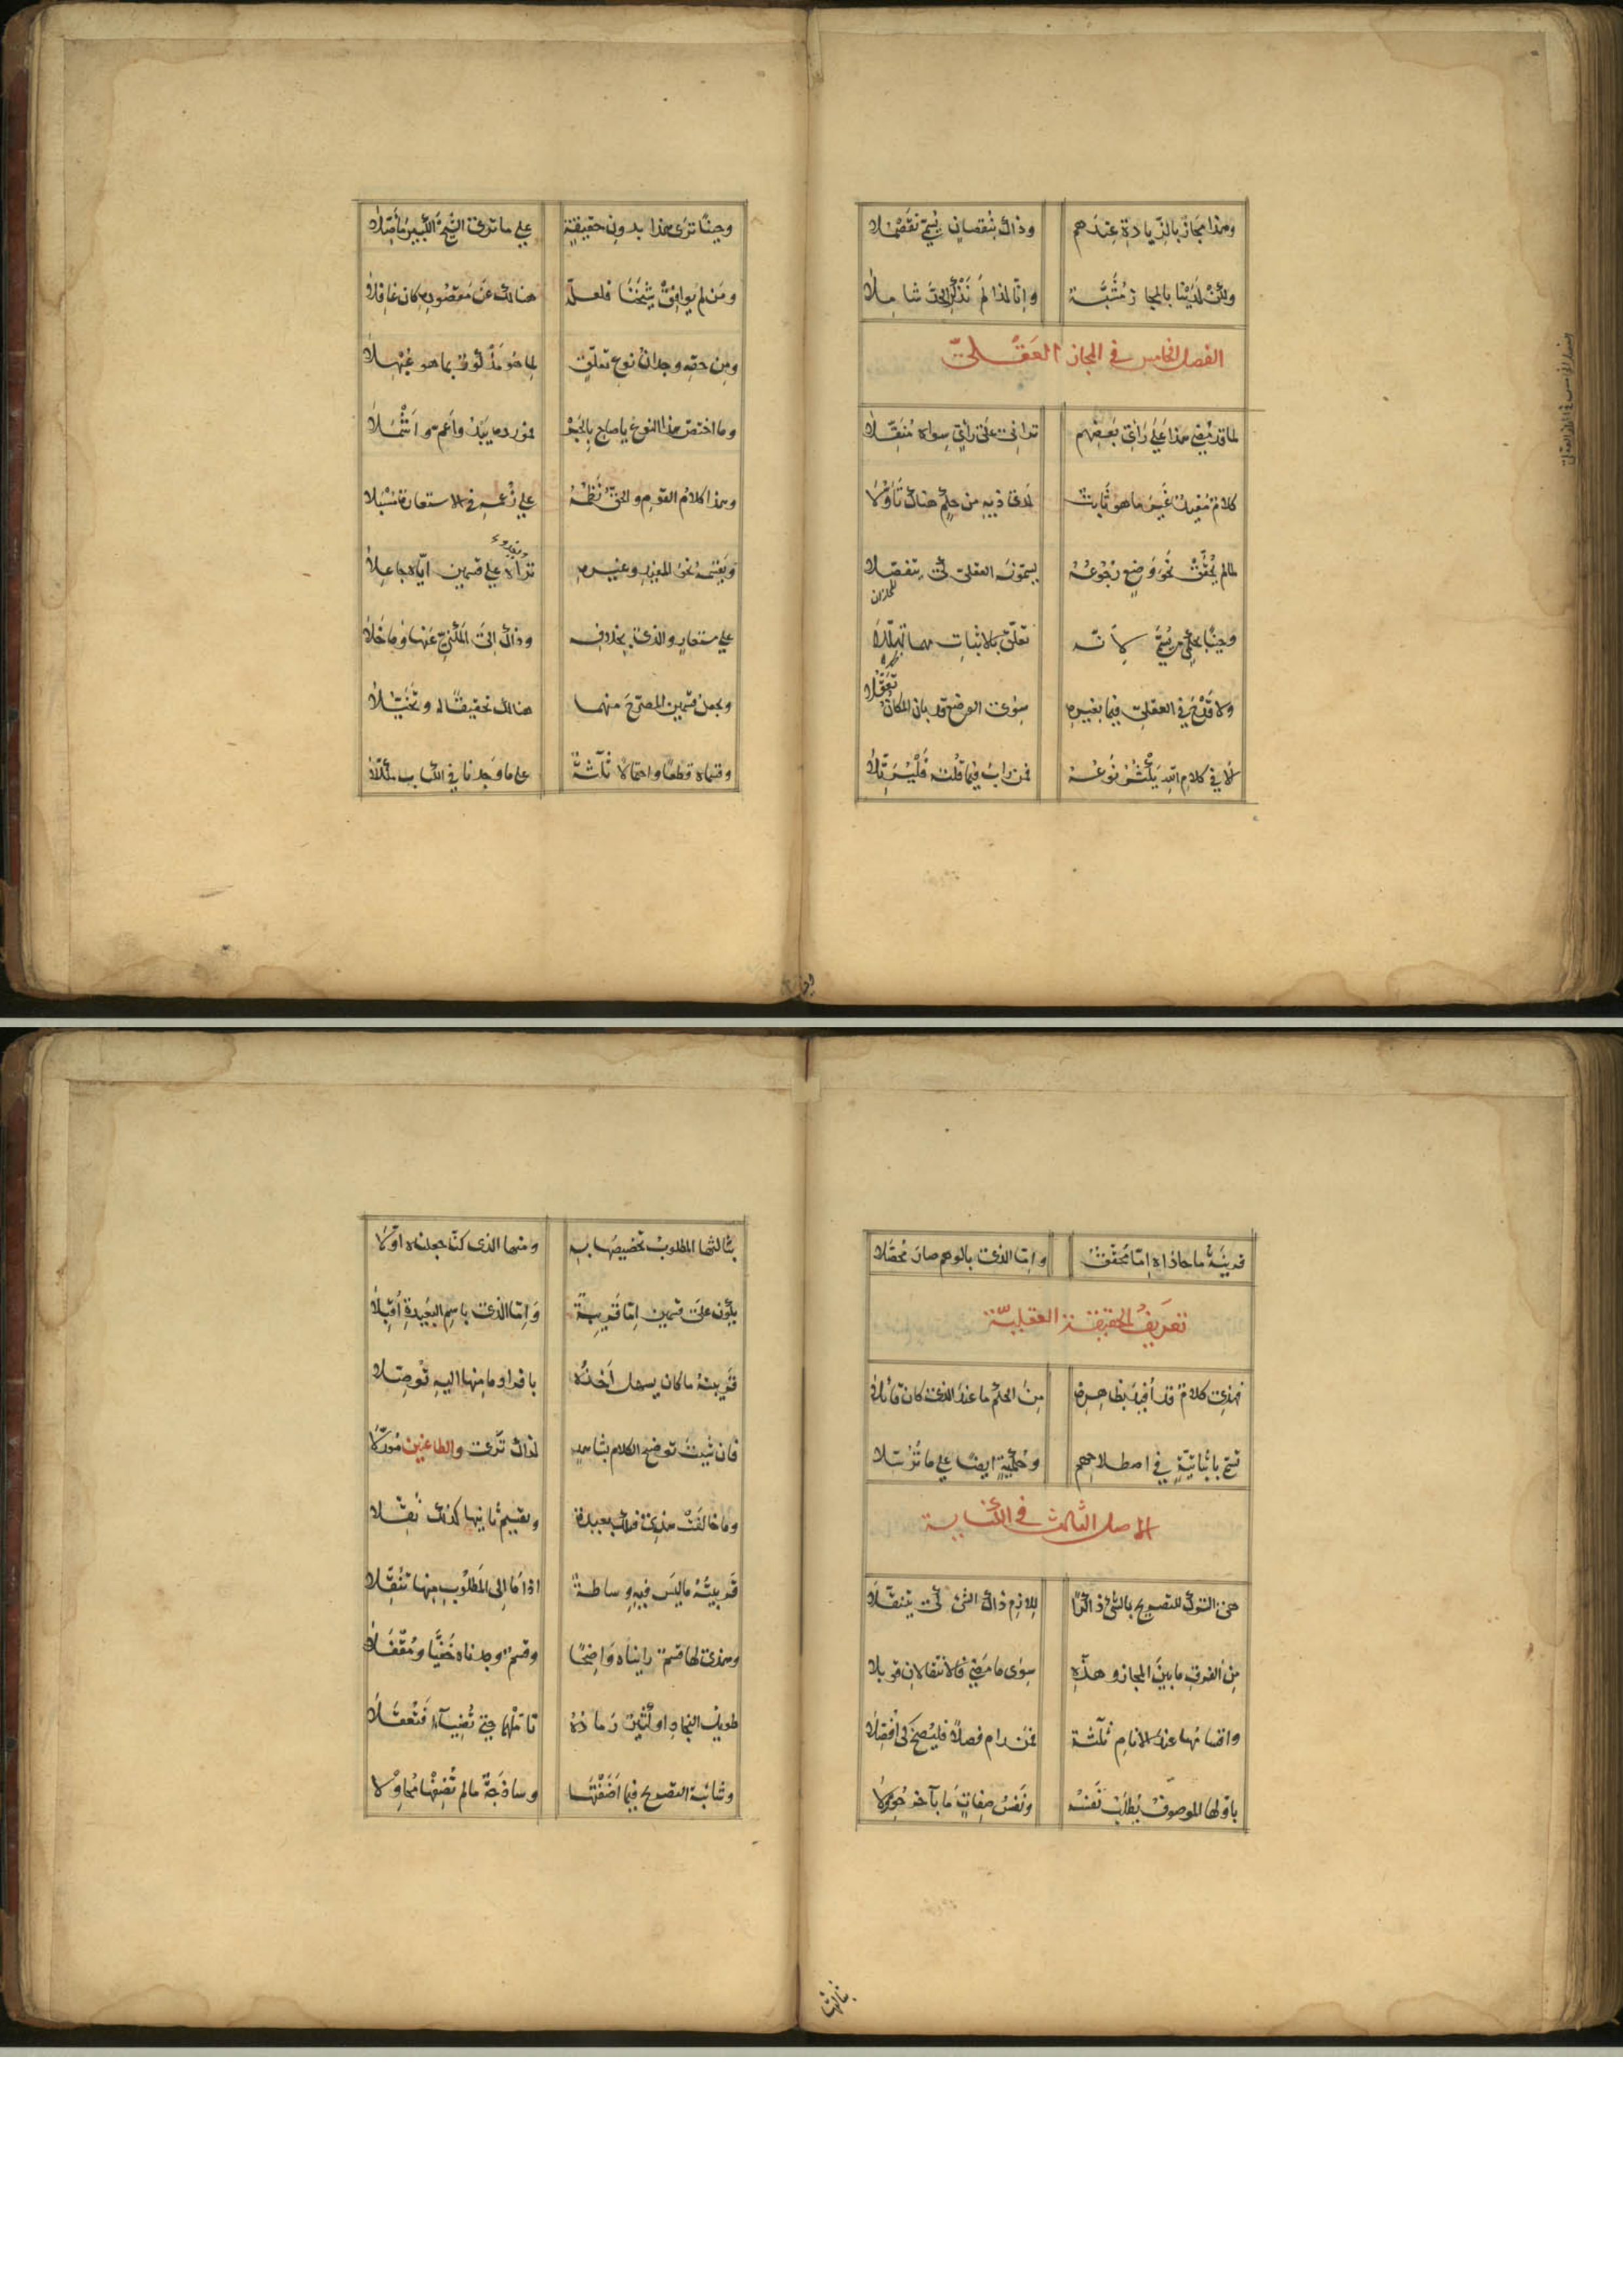 وهذا مجاز بالزيادة عندهم وذاك بنقصان يسمى نقصلا
ولكن لدينا بالمجاز مشبة وانا لذا لم نذكر الحد شاملا
الفصل الخامس في المجاز العقلي
لما قد مضى هذا على رأي بعضهم تراني على رأي سواه منقلا
كلام مفيد غير ما هو ثابت لدى فا ذيه من حكم هناك تأولا
لما لم يحقق نحو وضع رجوعه يسمونه العقلي كي يتفصلا
وحينا بحكمي يسمى لانه تعلق بالاثبات
ولا قدح في العقلي فيما بغيره سوى الوضع قد بان المكان تعقلا
لا في كلام الله يكثر نوعه فمن راب فيما قلت
وحينا ترى هذا بدون حقيقة على ما ترى الشيخ الكبير مأصلا
ومن لم يوافق شيخنا فلعله هنالك عن مقصوده كان غافلا
ومن حقه وجدان نوع تعلق لما هو مذكور بما هو
وما اختص هذا النوع يا صاح بالخبر فمورده يبدو اعم واشملا
وهذا كلام القوم والحق نظمه على زعمه في الاستعارة مسبلا
ويقسمه نحو المفيد وغيره تراه على قسمين اياه جاعلا
على مستعار والذي بحذوف وذاك الى المكني عنها وما خلا
ويجعل قسمين المصرح منهما هنالك تحقيقا له وتخيلا
وقسماه قطعا واحتمالا ثلثة على ما وجدنا في الكتاب
قرينة ما حاذاه اما محقق واما الذي بالوهم صار محصلا
تعريف الحقيقة العقلية
فهذي كلام قد أفيد بظاهره من الحكم ما عند الذي كان قائلا
تسمى باثباتية في اصطلاحهم وحكمية ايضا على ما ترسلا
الاصل الثالث في الكناية
هي الترك للتصريح بالشئ ذاكرا للازم ذاك الشئ كي يتنقلا
من الفرق ما بين المجاز وهذه سوى ما مضى فالانتقالان قد بلا
واقسامها عند الانام ثلثة فمن رام فصلا فليصخ كي افصلا
باولها الموصوف يطلب نفسه ونفس صفات ما بآخر حولا
ثالثها
بثالثها المطلوب تخصيصها به ومنها الذي كنا جعلناه اولا
يكون على قسمين اما قريبة واما الذي باسم البعيدة اقبلا
قريبته ما كان يسهل أخذه بافراد ما منها اليه توصلا
فان شئت توضيح الكلام بشاهد لذاك ترى والطاعنين موكلا
وما خالفت هذي فذاك بعيدة وتقسيم ثانيها كذلك نقلا
قريبته ما ليس فيه وساطة اذا ما الى المطلوب منها تنقلا
وهذي لها قسم رايناه واضحا وقسم وجدناه خفيا ومقفلا
طويل النجاد او كثير رماده تأملهما حتى تضيآ فتعقلا
وشائبة التصريح فيما اضفتها وساذجة ما لم تضفها محاولا